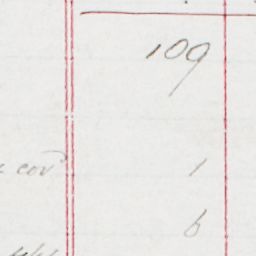 109
cov^d 1
6